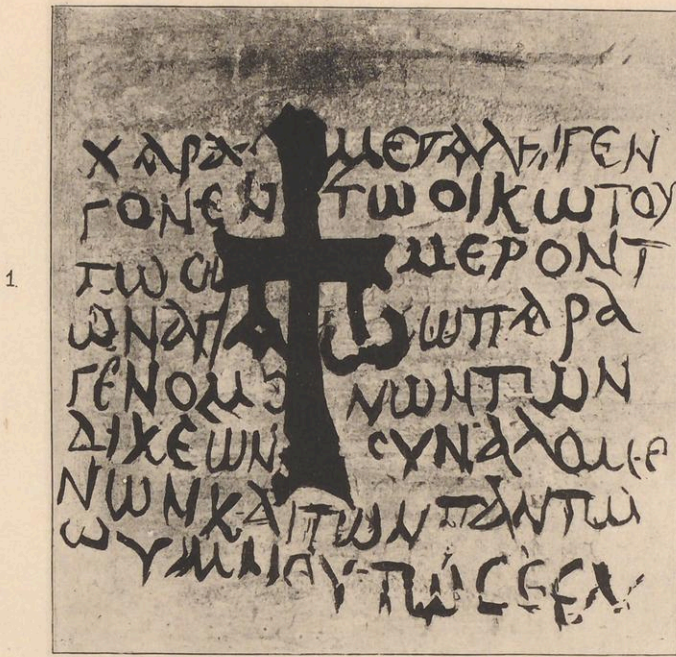 ΧΑΡΑ ΜΕΓΑΛΗ ΓΕΝ
ΓΟΝΕΝ ΤΩ ΟΙΚΩ ΤΟΥ
1. ΤΩ CΗΜΕΡΟΝ Τ
ΩΝ ΑΠ Α Ω Ω ΠΑΡΑ
ΓΕΝΟΜΕΝΩΝ ΤΩΝ
ΔΙΚΕΩΝ CΥΝΑΛΟΜΕ
ΝΩΝ ΚΑΙ ΤΩΝ ΠΑΝΤΩ